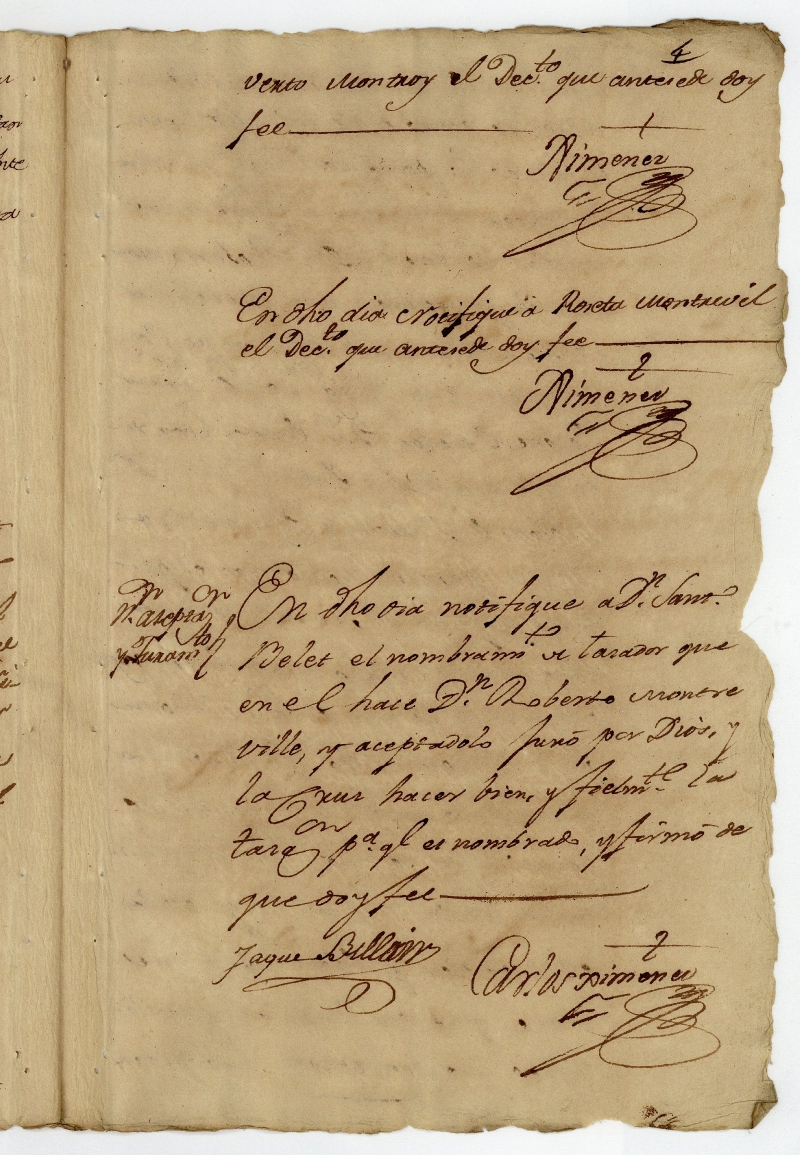 4
verto Montroy el Dec.to que antesede doy
fee
Ximenez
En dho dia Notifique a Roseta Montrevil
el Dec.to que antesede doy fee
Ximenez
En dho dia notifique a Dn. Sant.o
Belet el nombrami.to de tasador que
en el hace Dn. Roberto Montre
ville, y aceptadolo Juró por Dios, y
la Cruz hacer bien, y fielm.te la
tasaon pa. ql es nombrado, y firmó de
que doy fee
Non. aseptaon
y Juram.to
Jaque Bellair
Carlos Ximenez